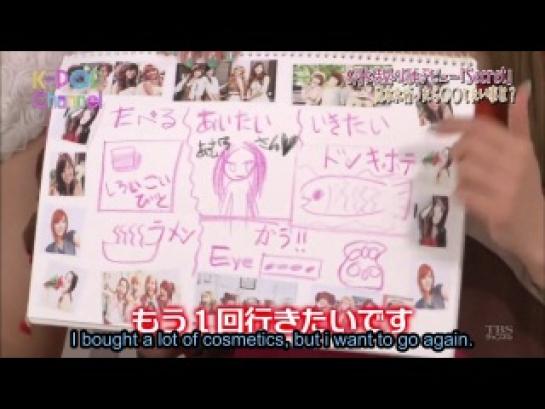 Channel
「Secret」
たべる
あいたい
いきたい
あむろ さん♥
ドンキホテ
しろいこい
びと
ラメン
かう!!
Eye
もう1回行きたいです
I bought a lot of cosmetics, but i want to go again.
TBS
チャンネル